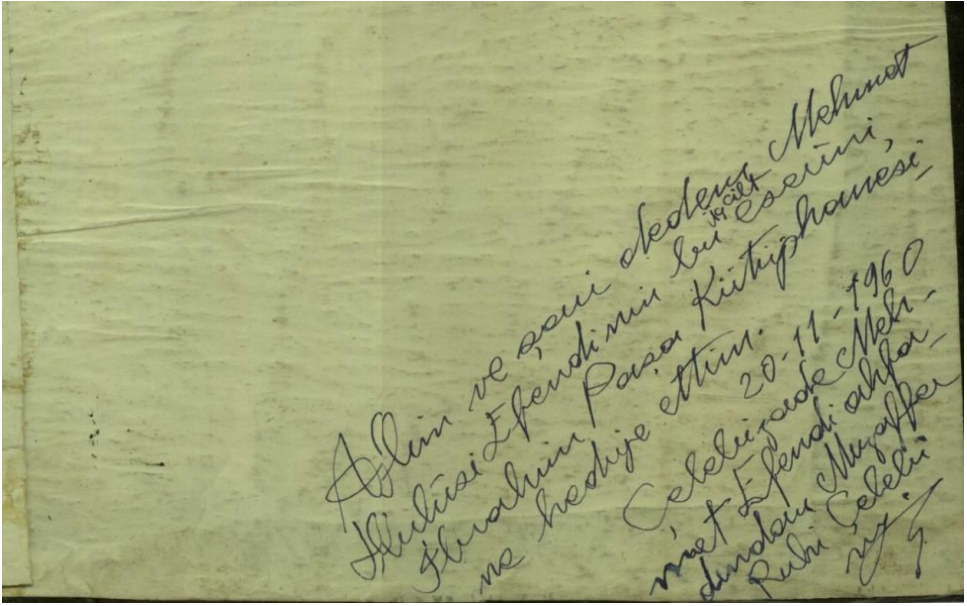 Âlim ve şair dedem Mehmet
Hulûsi Efendinin bu eserini,
İbrahim Paşa Kütüphanesi-
ne hediye ettim.
20-11-1960
Çelebizade Meh-
met Efendi ahfa-
dından Muzaffer
Ruhi Çelebi